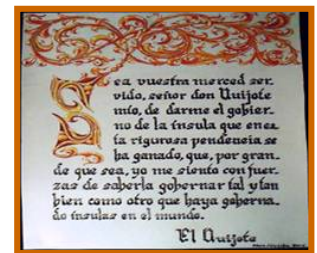 Sea vuestra merced ser-
vido, señor don Quijote
mío, de darme el gobier-
no de la ínsula que en es-
ta rigurosa pendencia se
ha ganado, que, por gran-
de que sea, yo me siento con fuer-
zas de saberla gobernar tal y tan
bien como otro que haya goberna-
do ínsulas en el mundo.
El Quijote